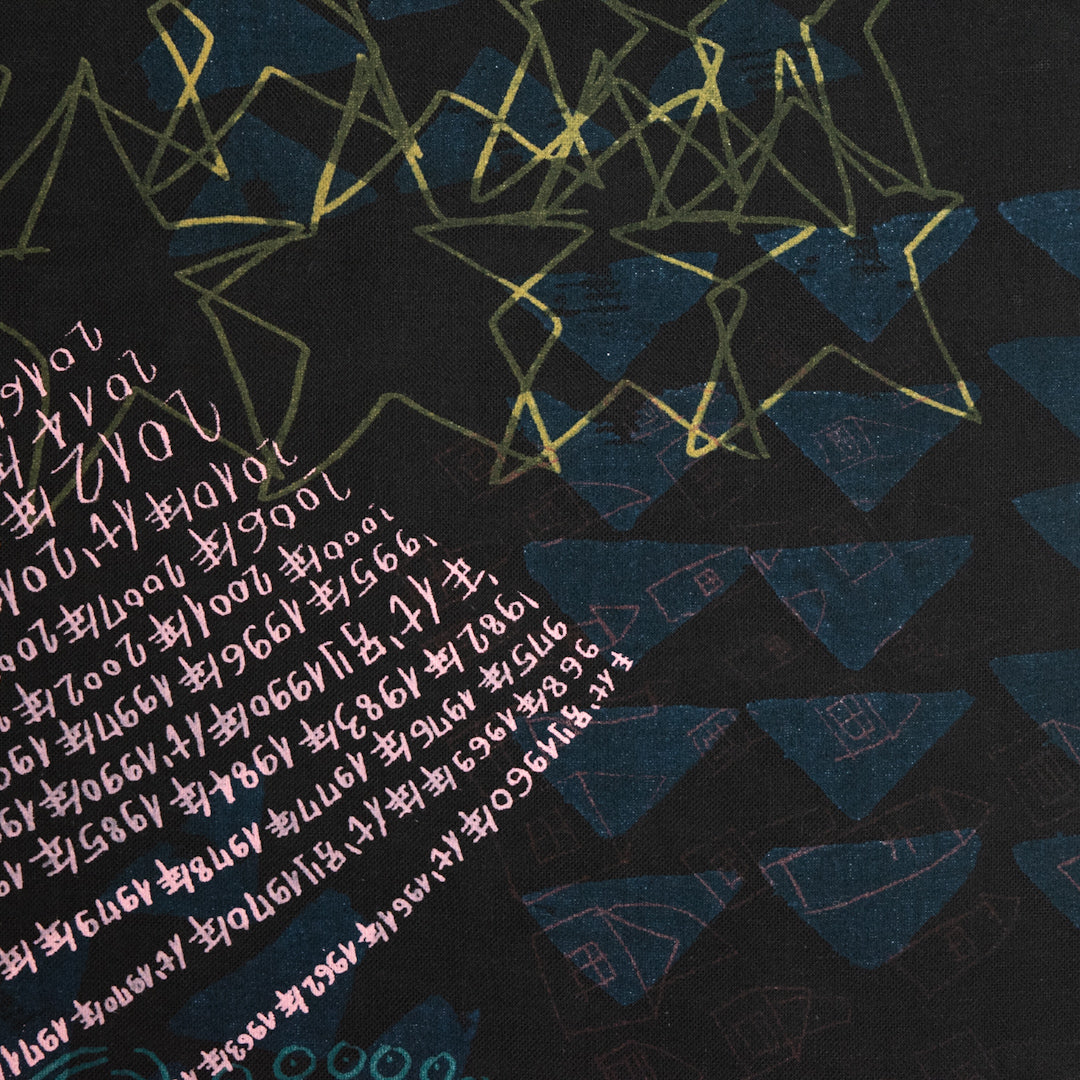 2016
2014年
2012年
2010年年代'201
2006年2007年200
2000年2001年2002年
1995年1996年1997年19
年代'別1990年代'1990年19
1982年1983年1984年1985年1
1975年1976年1977年1978年1979年年
1968年1969年年代'別1970年代'1970年1971
年代'別1960年代'1961年1962年1963年